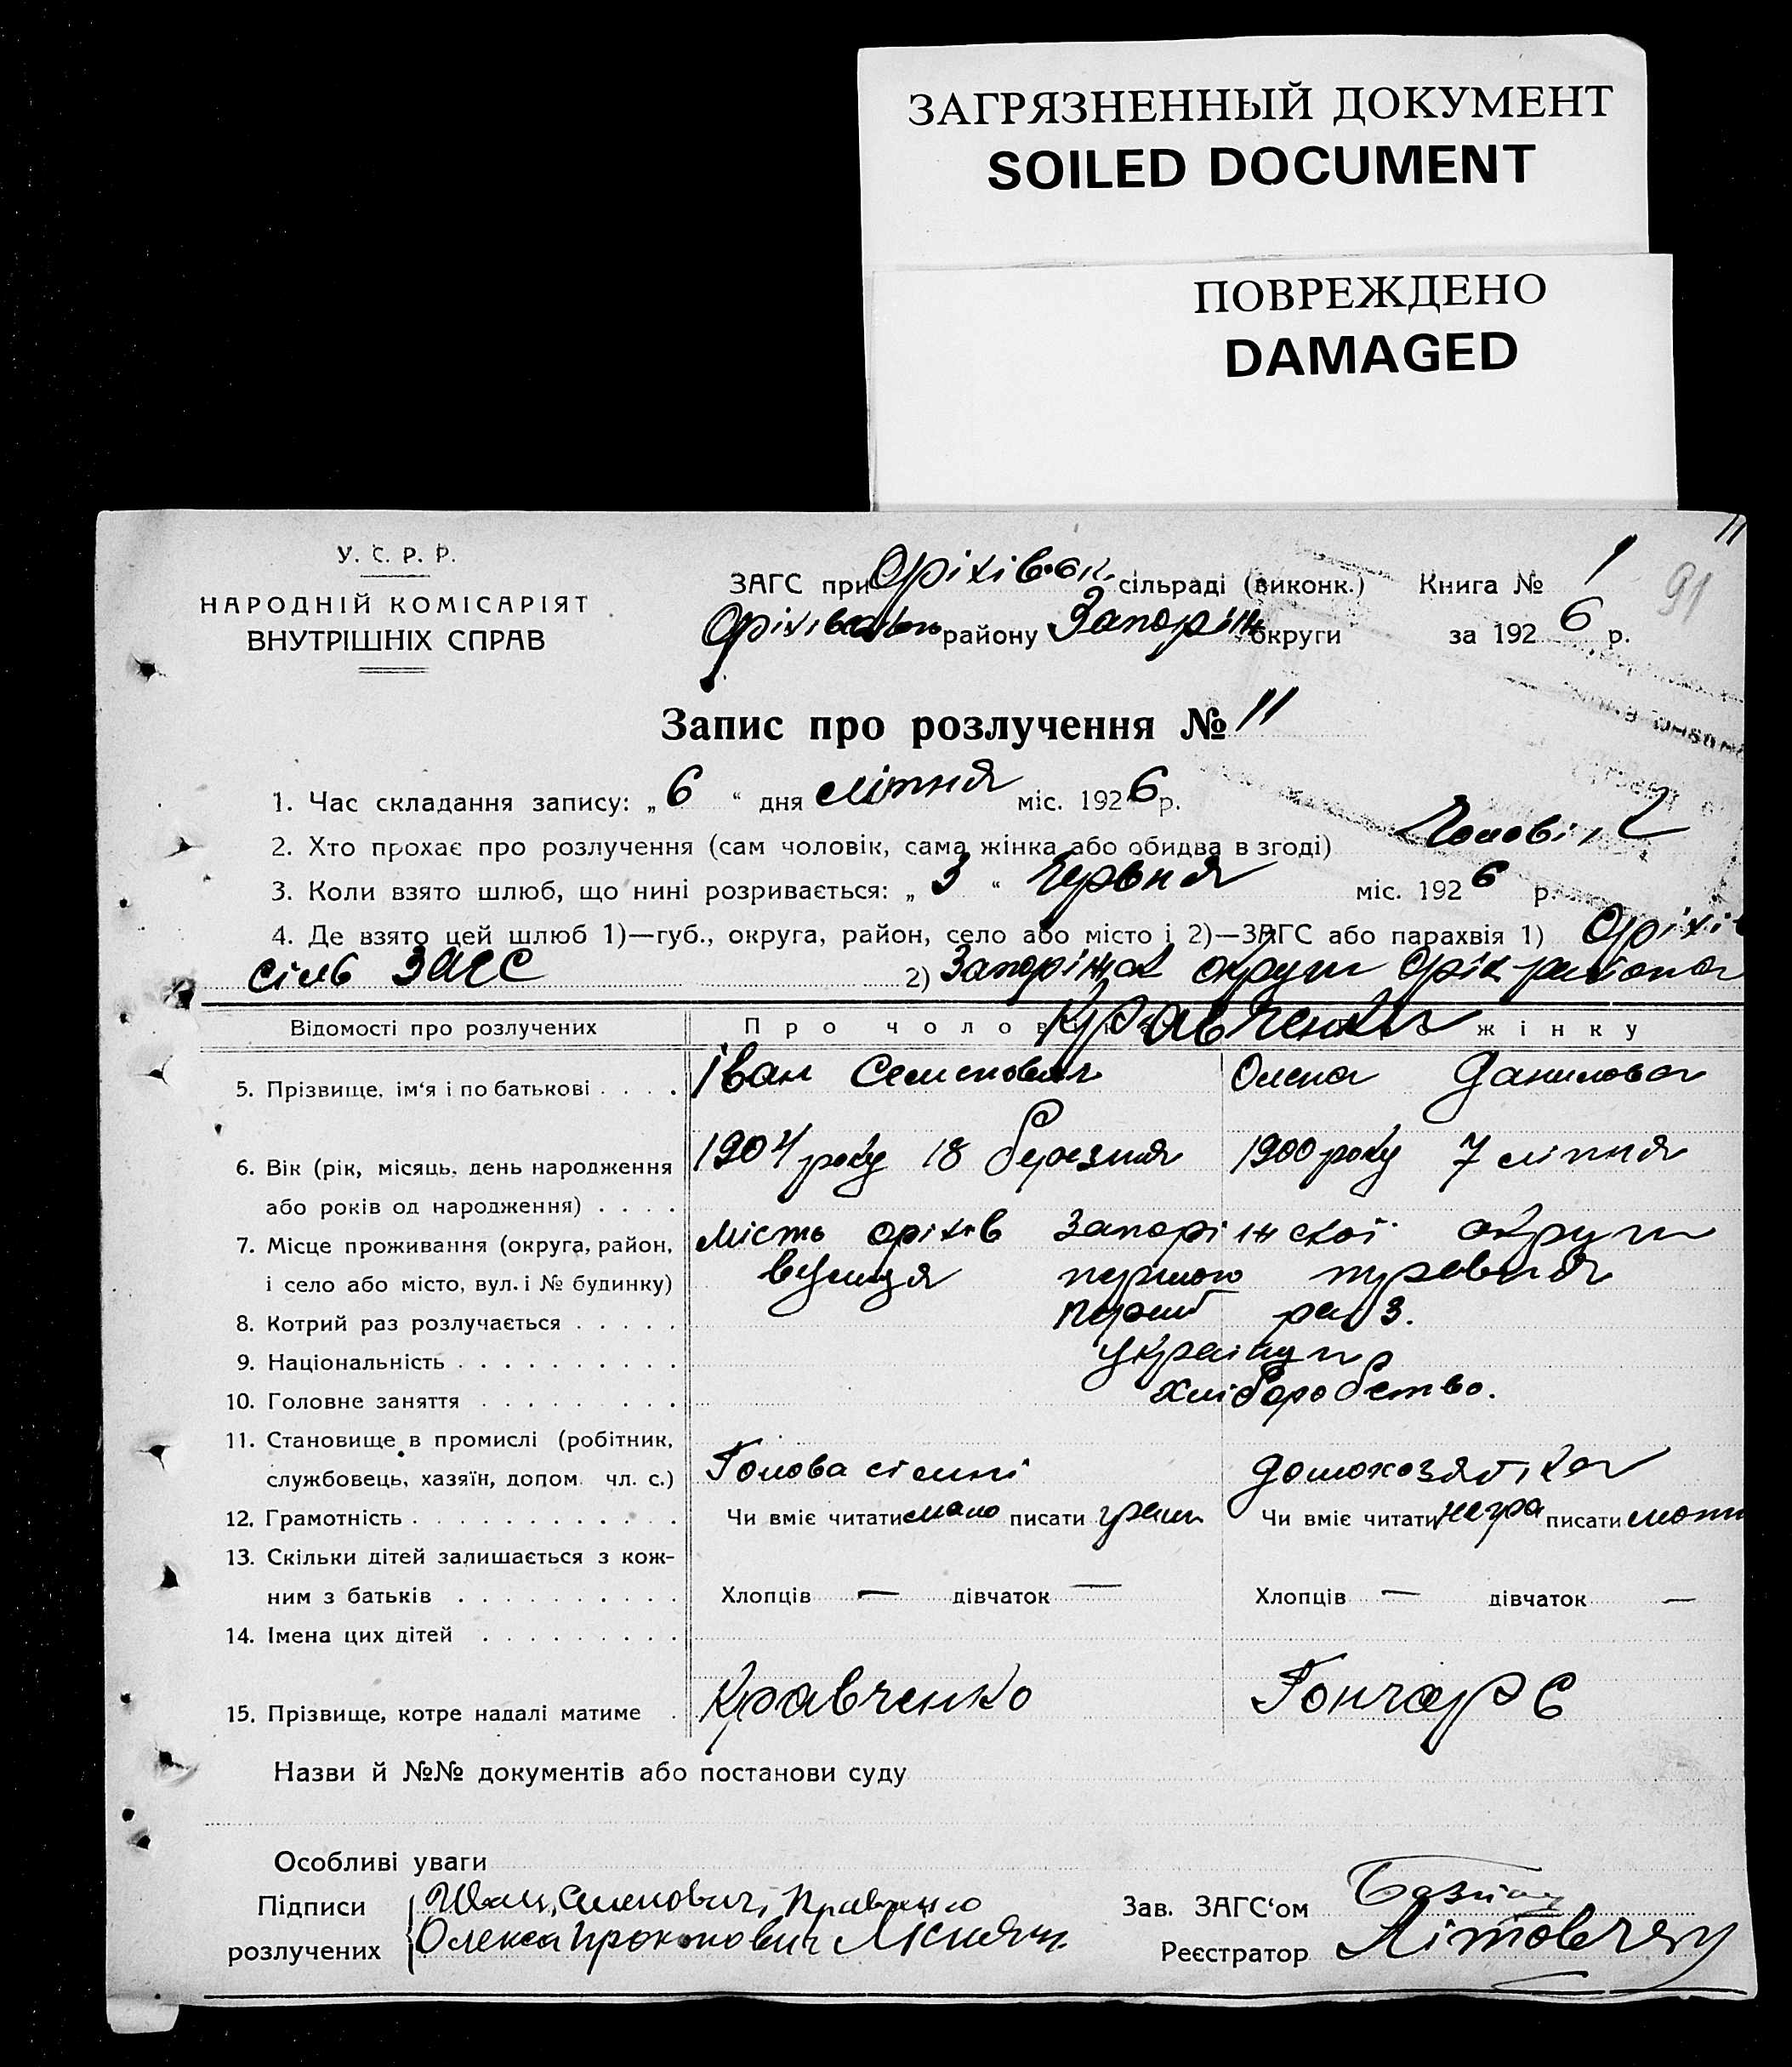 ЗАГРЯЗНЕННЫЙ ДОКУМЕНТ
SOILED DOCUMENT
ПОВРЕЖДЕНО
DAMAGED
11
У. С. Р. Р.
НАРОДНІЙ КОМІСАРІЯТ
ВНУТРІШНІХ СПРАВ
ЗАГС при сільраді (виконк.) Книга № 1
91
району Запоріж округи за 1926 р.
Запис про розлучення № 11
1. Час складання запису: „6“ дня ліпня міс. 1926 р.
2. Хто прохає про розлучення (сам чоловік, сама жінка або обидва в згоді) Чоловік
3. Коли взято шлюб, що нині розривається: „3“ Червня міс. 1926 р.
4. Де взято цей шлюб 1)—губ., округа, район, село або місто і 2)—ЗАГС або парахвія 1) Оріхів
сіль ЗАГС 2) Запоріжск округи Оріх района
Відомості про розлучених Про жінку
Кравченки
5. Прізвище, ім'я і по батькові . . . . Іван Семенович Олена Данилова
6. Вік (рік, місяць, день народження 1904 року 18 березня 1900 року 7 ліпня
або років од народження) . . . .
7. Місце проживання (округа, район, Мість Оріхів Запоріжскої округи
і село або місто, вул. і № будинку) вулиця першого
8. Котрий раз розлучається . . . . . перший раз.
9. Національність . . . . . . . . . . українци
10. Головне заняття . . . . . . . . . хліборобство.
11. Становище в промислі (робітник,
службовець, хазяїн, допом. чл. с.) Голова сімні домохозяйка
12. Грамотність . . . . . . . . . . . . Чи вміє читати мало писати грам Чи вміє читати негра писати мотн
13. Скільки дітей залишається з кож-
ним з батьків . . . . . . . . . . Хлопців — дівчаток — Хлопців — дівчаток —
14. Імена цих дітей . . . . . . . . .
15. Прізвище, котре надалі матиме . Кравченко Гончар Є
Назви й №№ документів або постанови суду
Особливі уваги
Підписи Иван Семенович Кравченко Зав. ЗАГС'ом
розлучених Олекса Прокопович Реєстратор